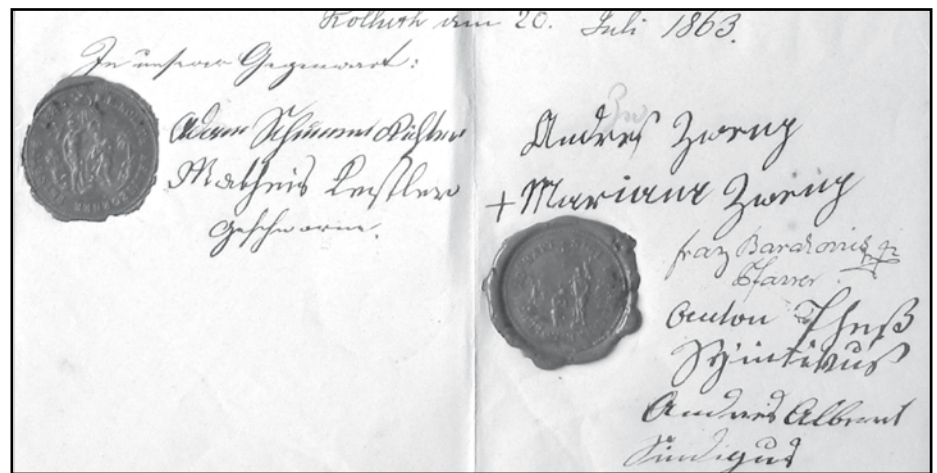 Kolluth am 20. Juli 1863.
In unserer Gegenwart:
Adam Schummet Richter
Matheis Kestler
Geschworne.
Andres Zwerig
+ Mariana Zwerig
franz Barakovits
Pfarrer
Anton Theß
Syintikus
Andres Albert
Sindigus